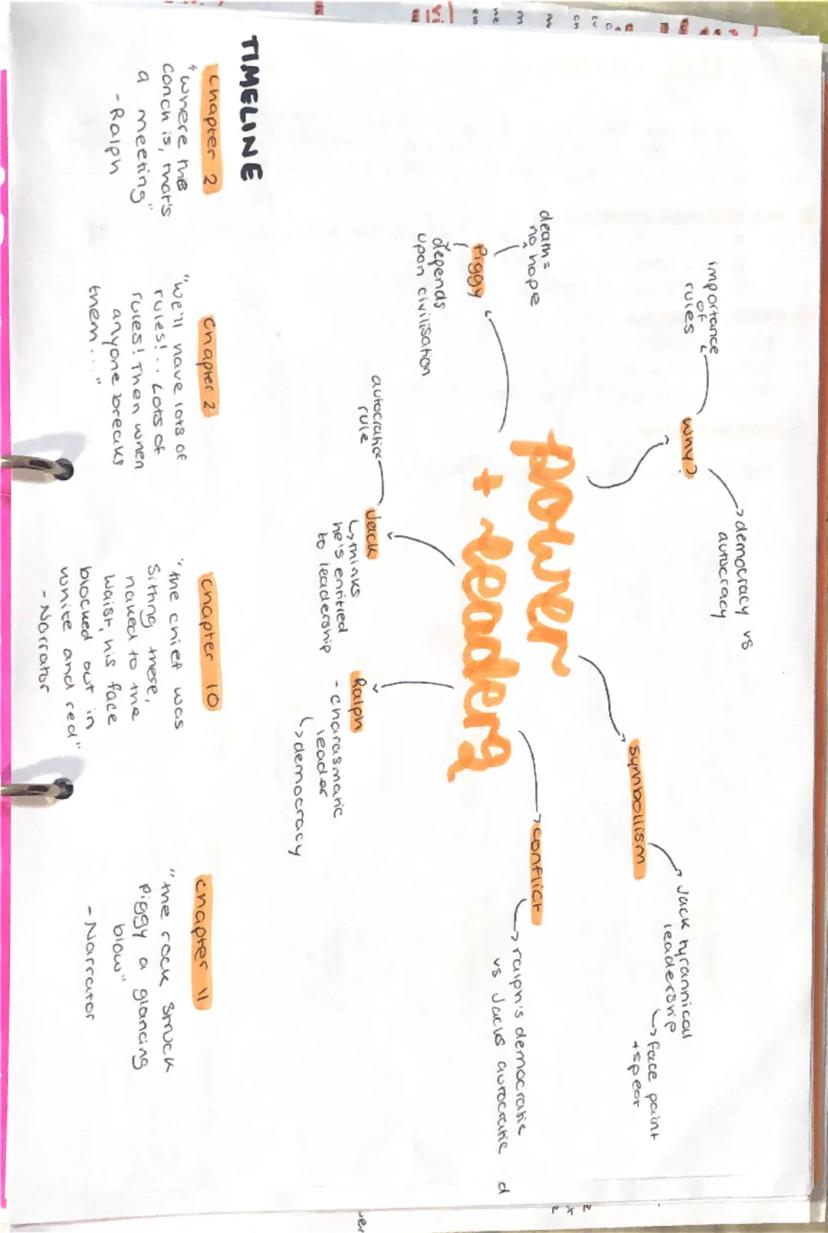 power
+ leaders
Why?
importance
of
rules
democracy vs
autocracy
symbollism
Jack tyrannical
leadership
face paint
+ spear
conflict
ralph's democratic
vs Jacks autocratic
Piggy
death =
no hope
depends
upon civilisation
Jack
autocratic
rule
thinks
he's entitled
to leadership
Ralph
- charasmatic
leader
democracy
TIMELINE
Chapter 2
"where the
conch is, that's
a meeting"
- Ralph
Chapter 2
"We'll have lots of
rules!.. Lots of
rules! Then when
anyone breaks
them..."
Chapter 10
"the chief was
sitting there,
naked to the
waist, his face
blocked out in
white and red"
- Narrator
Chapter 11
"the rock struck
Piggy a glancing
blow"
- Narrator